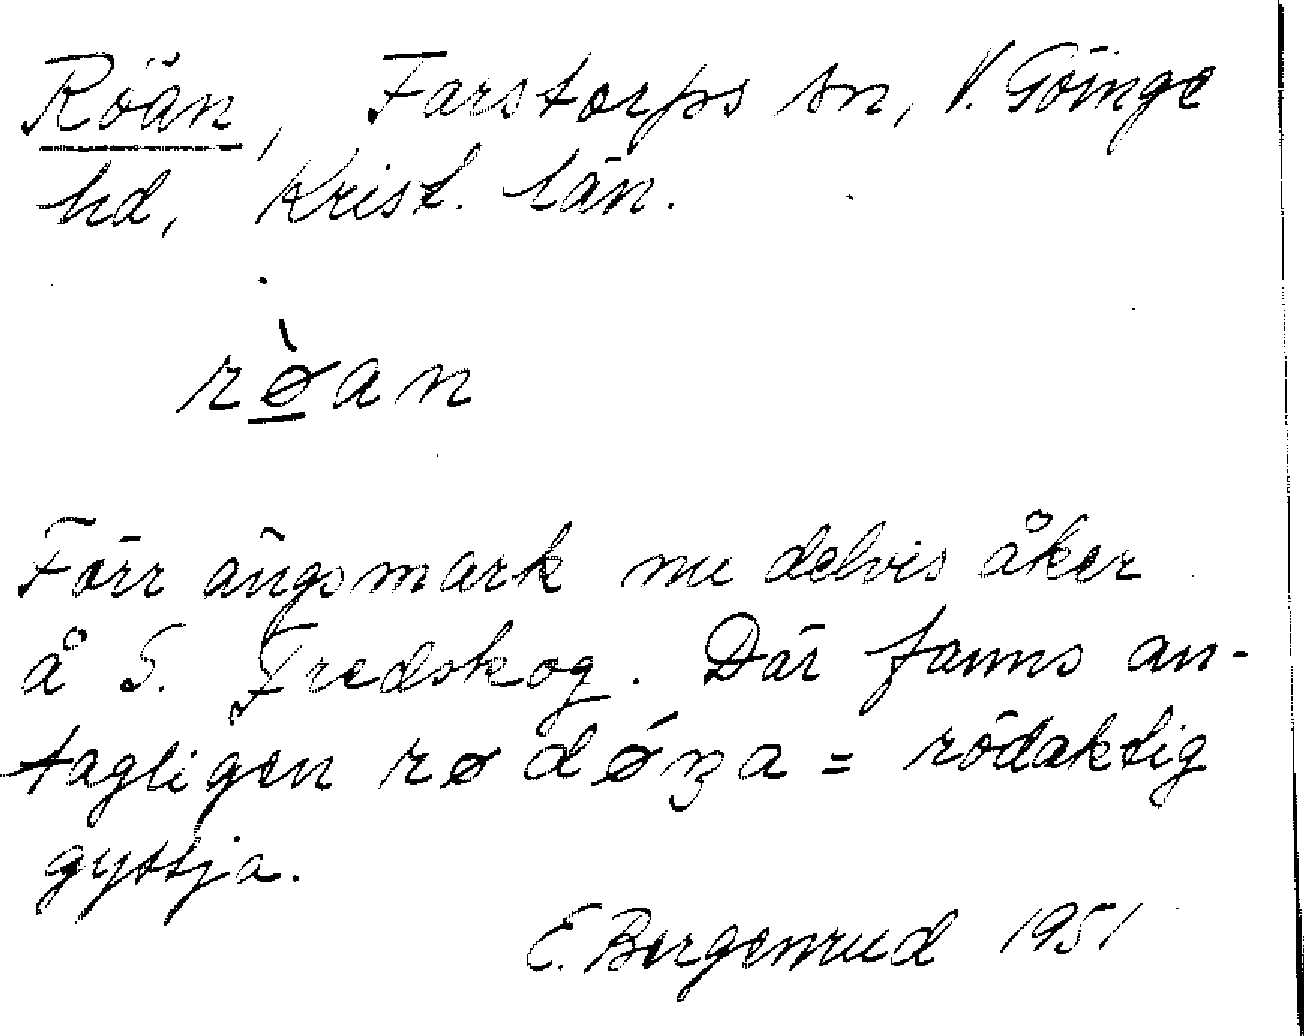 Röän, Farstorps sn, V. Göinge
hd, Krist. län.
rø̀an
Förr ängsmark nu delvis åker
å S. Fredskog. Där fanns an-
tagligen rødǿŋa = rödaktig
gyttja.
E. Bergenrud 1951